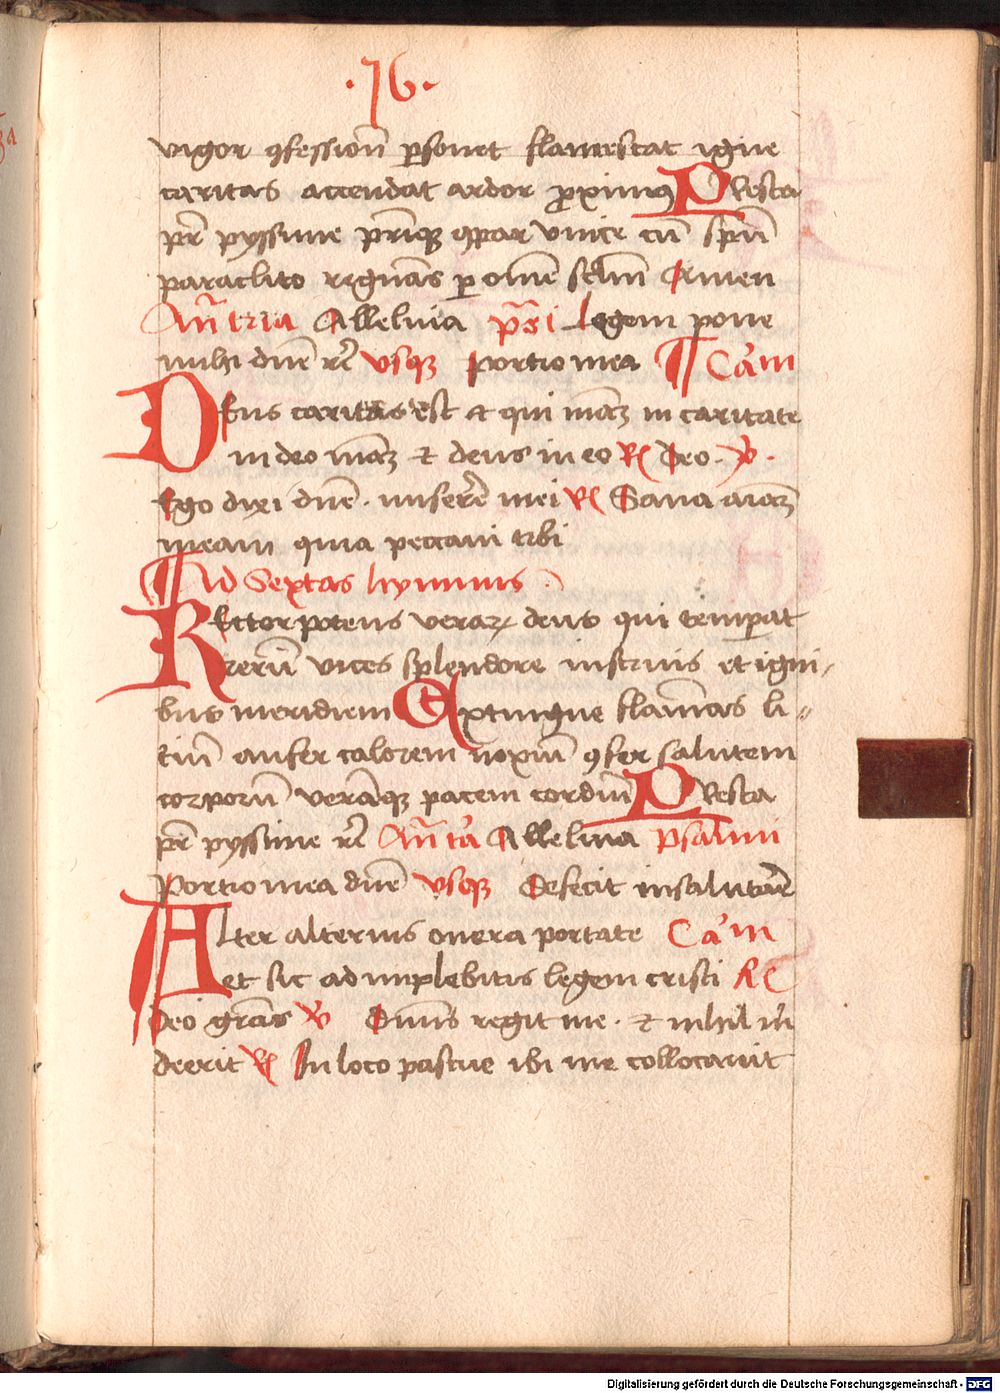 ·76·
vigor ꝯfessionē ꝑsonet flamescat igne
caritas accendat ardor ꝓximos Presta
pr̄ pyssime pr̄iqꝫ ꝯpar vnice cū spū
paraclito regnās ꝑ om̄e sclm̄ Amen
An̄ tria Allelvia ps̄i Legem pone
mihi dn̄e rc̄ vsqꝫ Portio mea ¶ Cām
Deus caritas est et qui manꝫ in caritate
in deo manꝫ et deus in eo R Deo · V ·
Ego dixi dn̄e · miserēre mei R Sana aiaꝫ
meam quia peccaui tibi
¶ Ad Sextas hymnus ·
Rector potens veraxꝫ deus qui temperat
rerū vices splendore instruis et igni-
bus meridiem Extingue flammas li-
tiū aufer calorem noxiū ꝯfer salutem
corporū verāqꝫ pacem cordiū Presta
pr̄ pyssime rc̄ An̄ta Allelvia Psalmi
Portio mea dn̄e vsqꝫ Defecit in salutāre
Alter alterius onera portate Cām
et sic adimplebitis legem cristi R
Deo grās V Dominus regit me · et nihil m
deerit R In loco pascue ibi me collocauit
Digitalisierung gefördert durch die Deutsche Forschungsgemeinschaft - DFG